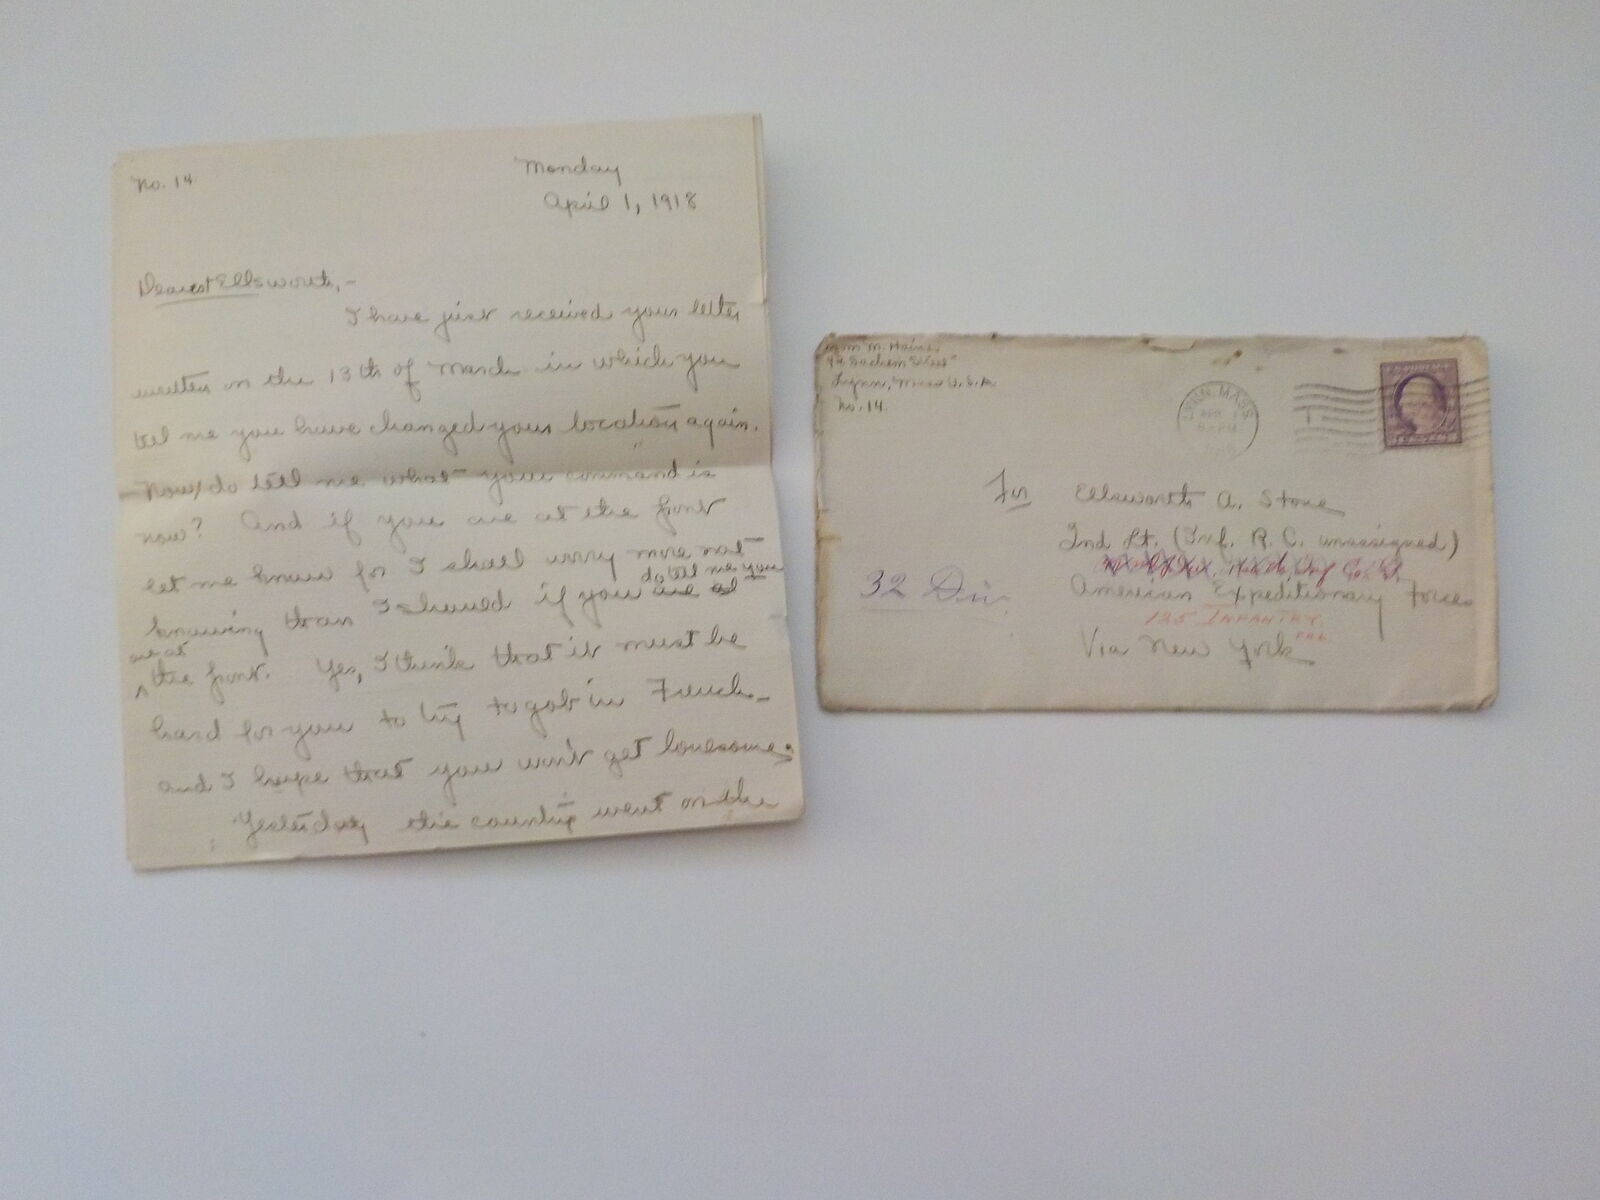 No. 14
Monday
April 1, 1918
Dearest Ellsworth,-
I have just received your letter
written on the 13th of March in which you
tell me you have changed your location again.
Now do tell me what your command is
now? And if you are at the front
let me know for I shall worry more not
knowing than I should if you do tell me you
are at
the front. Yes, I think that it must be
hard for you to try to gab in French
and I hope that you won't get lonesome.
Yesterday the country went on the
M. Haines
42 Sachem Street
Lynn, Mass U.S.A
No. 14.
LYNN, MASS
APR 1
PM
For Ellsworth A. Stone
2nd Lt. (Inf. R. C. unassigned)
32 Div.
American Expeditionary Forces
125 INFANTRY.
Via New York